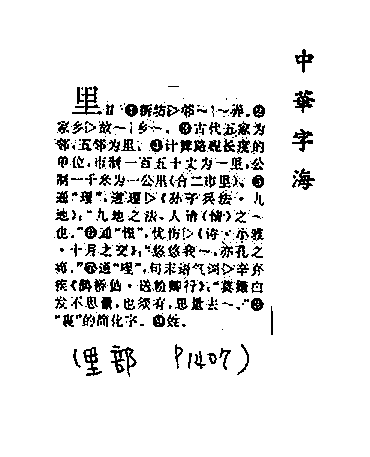 中華字海
里 lǐ ❶街坊▷邻~|~弄。❷
家乡▷故~|乡~。❸古代五家为
邻,五邻为里。❹计算路程长度的
单位,市制一百五十丈为一里,公
制一千米为一公里(合二市里)。❺
通“理”,道理▷《孙子兵法·九
地》:“九地之法、人请(情)之~
也。”❻通“悝”,忧伤▷《诗·小雅
·十月之交》:“悠悠我~,亦孔之
痗。”❼通“哩”,句末语气词▷辛弃
疾《鹊桥仙·送粉卿行》:“莫嫌白
发不思量,也须有、思量去~。”❽
“裏”的简化字。❾姓。
(里部 P1407)